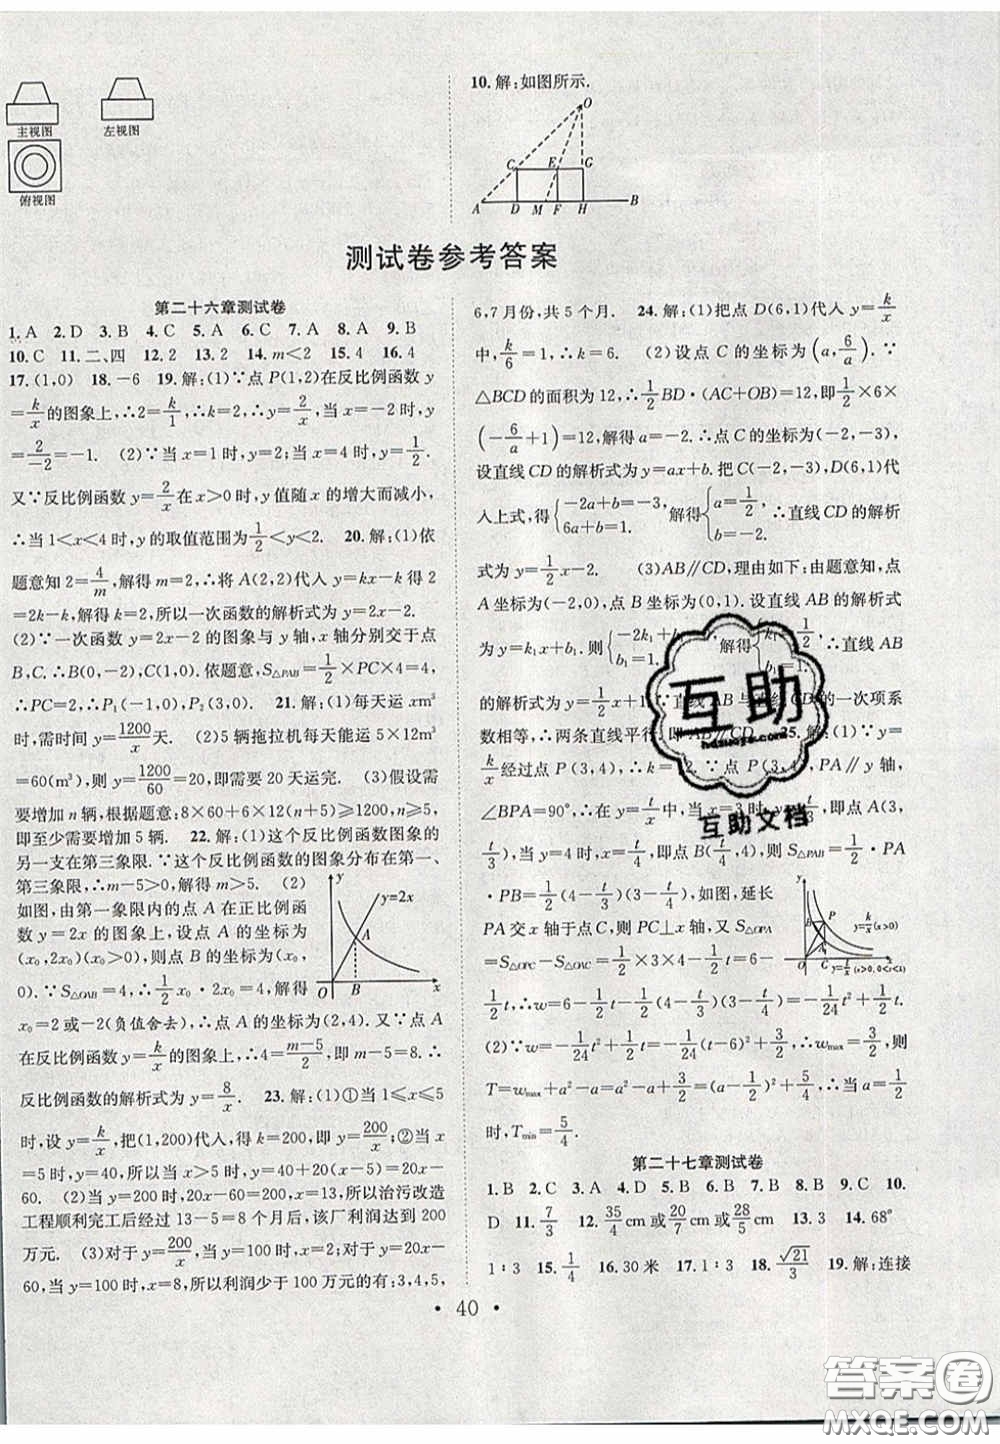 主视图
左视图
俯视图
10. 解:如图所示.
O
C
E
G
A
D
M
F
H
B
测试卷参考答案
第二十六章测试卷
1. A 2. D 3. B 4. C 5. A 6. C 7. B 8. A 9. B
10. C 11. 二、四 12. 2 13. 2 14. m<2 15. 4 16. 4
17. (1,0) 18. -6 19. 解:(1)∵点 P(1,2)在反比例函数 y
=k/x的图象上,∴2=k/1,∴k=2,∴y=2/x,当 x=-2 时,y
=2/-2=-1. (2)∵当 x=1 时,y=2;当 x=4 时,y=1/2.
又∵反比例函数 y=2/x在 x>0 时,y 值随 x 的增大而减小,
∴当 1<x<4 时,y 的取值范围为1/2<y<2. 20. 解:(1)依
题意知 2=4/m,解得 m=2,∴将 A(2,2)代入 y=kx-k 得 2
=2k-k,解得 k=2,所以一次函数的解析式为 y=2x-2.
(2)∵一次函数 y=2x-2 的图象与 y 轴,x 轴分别交于点
B,C.∴B(0,-2),C(1,0).依题意,S△PAB=1/2×PC×4=4,
∴PC=2,∴P₁(-1,0),P₂(3,0). 21. 解:(1)每天运 x m³
时,需时间 y=1200/x天. (2)5 辆拖拉机每天能运 5×12m³
=60(m³),则 y=1200/60=20,即需要 20 天运完. (3)假设需
要增加 n 辆,根据题意:8×60+6×12(n+5)≥1200,n≥5,
即至少需要增加 5 辆. 22. 解:(1)这个反比例函数图象的
另一支在第三象限.∵这个反比例函数的图象分布在第一、
第三象限,∴m-5>0,解得 m>5. (2)
如图,由第一象限内的点 A 在正比例函
数 y=2x 的图象上,设点 A 的坐标为
(x₀,2x₀)(x₀>0),则点 B 的坐标为(x₀,
0).∵S△OAB=4,∴1/2x₀·2x₀=4,解得
y
y=2x
A
O
B
x
x₀=2 或-2(负值舍去),∴点 A 的坐标为(2,4).又∵点 A
在反比例函数 y=k/x的图象上,∴4=m-5/2,即 m-5=8.∴
反比例函数的解析式为 y=8/x. 23. 解:(1)①当 1≤x≤5
时,设 y=k/x,把(1,200)代入,得 k=200,即 y=200/x;②当 x
=5 时,y=40,所以当 x>5 时,y=40+20(x-5)=20x-
60. (2)当 y=200 时,20x-60=200,x=13,所以治污改造
工程顺利完工后经过 13-5=8 个月后,该厂利润达到 200
万元. (3)对于 y=200/x,当 y=100 时,x=2;对于 y=20x-
60,当 y=100 时,x=8,所以利润少于 100 万元的有:3,4,5,
6,7 月份,共 5 个月. 24. 解:(1)把点 D(6,1)代入 y=k/x
中,k/6=1,∴k=6. (2)设点 C 的坐标为(a,6/a).∵
△BCD 的面积为 12,∴1/2BD·(AC+OB)=12,即1/2×6×
(-6/a+1)=12,解得 a=-2.∴点 C 的坐标为(-2,-3),
设直线 CD 的解析式为 y=ax+b.把 C(-2,-3),D(6,1)代
入上式,得{-2a+b=-3, 6a+b=1. 解得{a=1/2, b=-2. ∴直线 CD 的解析
式为 y=1/2x-2. (3)AB∥CD,理由如下:由题意知,点
A 坐标为(-2,0),点 B 坐标为(0,1).设直线 AB 的解析式
为 y=k₁x+b₁.则{-2k₁+b₁=0, b₁=1. 解得{k₁=1/2, b₁=1. ∴直线 AB
的解析式为 y=1/2x+1.∵直线 AB 与直线 CD 的一次项系
数相等,∴两条直线平行,即 AB∥CD. 25. 解:(1)∵y=
k/x经过点 P(3,4),∴k=12.∵点 P(3,4),PA∥y 轴,
∠BPA=90°,∴在 y=t/x中,当 x=3 时,y=t/3,即点 A(3,
t/3),当 y=4 时,x=t/4,即点 B(t/4,4),则 S△PAB=1/2·PA
·PB=1/2(4-t/3)(3-t/4),如图,延长
PA 交 x 轴于点 C,则 PC⊥x 轴,又 S△OPA
=S△OPC-S△OAC=1/2×3×4-1/2t=6-
y
B
P
A
O
C
y=k/x(x>0)
y=t/x(x>0,0<t<k)
1/2t,∴w=6-1/2t-1/2(4-t/3)(3-t/4)=-1/24t²+1/2t.
(2)∵w=-1/24t²+1/2t=-1/24(t-6)²+3/2,∴wmax=3/2,则
T=wmax+a²-a=a²-a+3/2=(a-1/2)²+5/4,∴当 a=1/2
时,Tmin=5/4.
第二十七章测试卷
1. B 2. C 3. A 4. D 5. B 6. D 7. B 8. B 9. C 10.
D 11. 7/3 12. 35/4 cm 或 20/7 cm 或 28/5 cm 13. 3 14. 68°
1∶3 15. 1/4 16. 30 米 17. 1∶3 18. √21/3 19. 解:连接
· 40 ·
互助
互助文档
答案圈
MXQE.COM